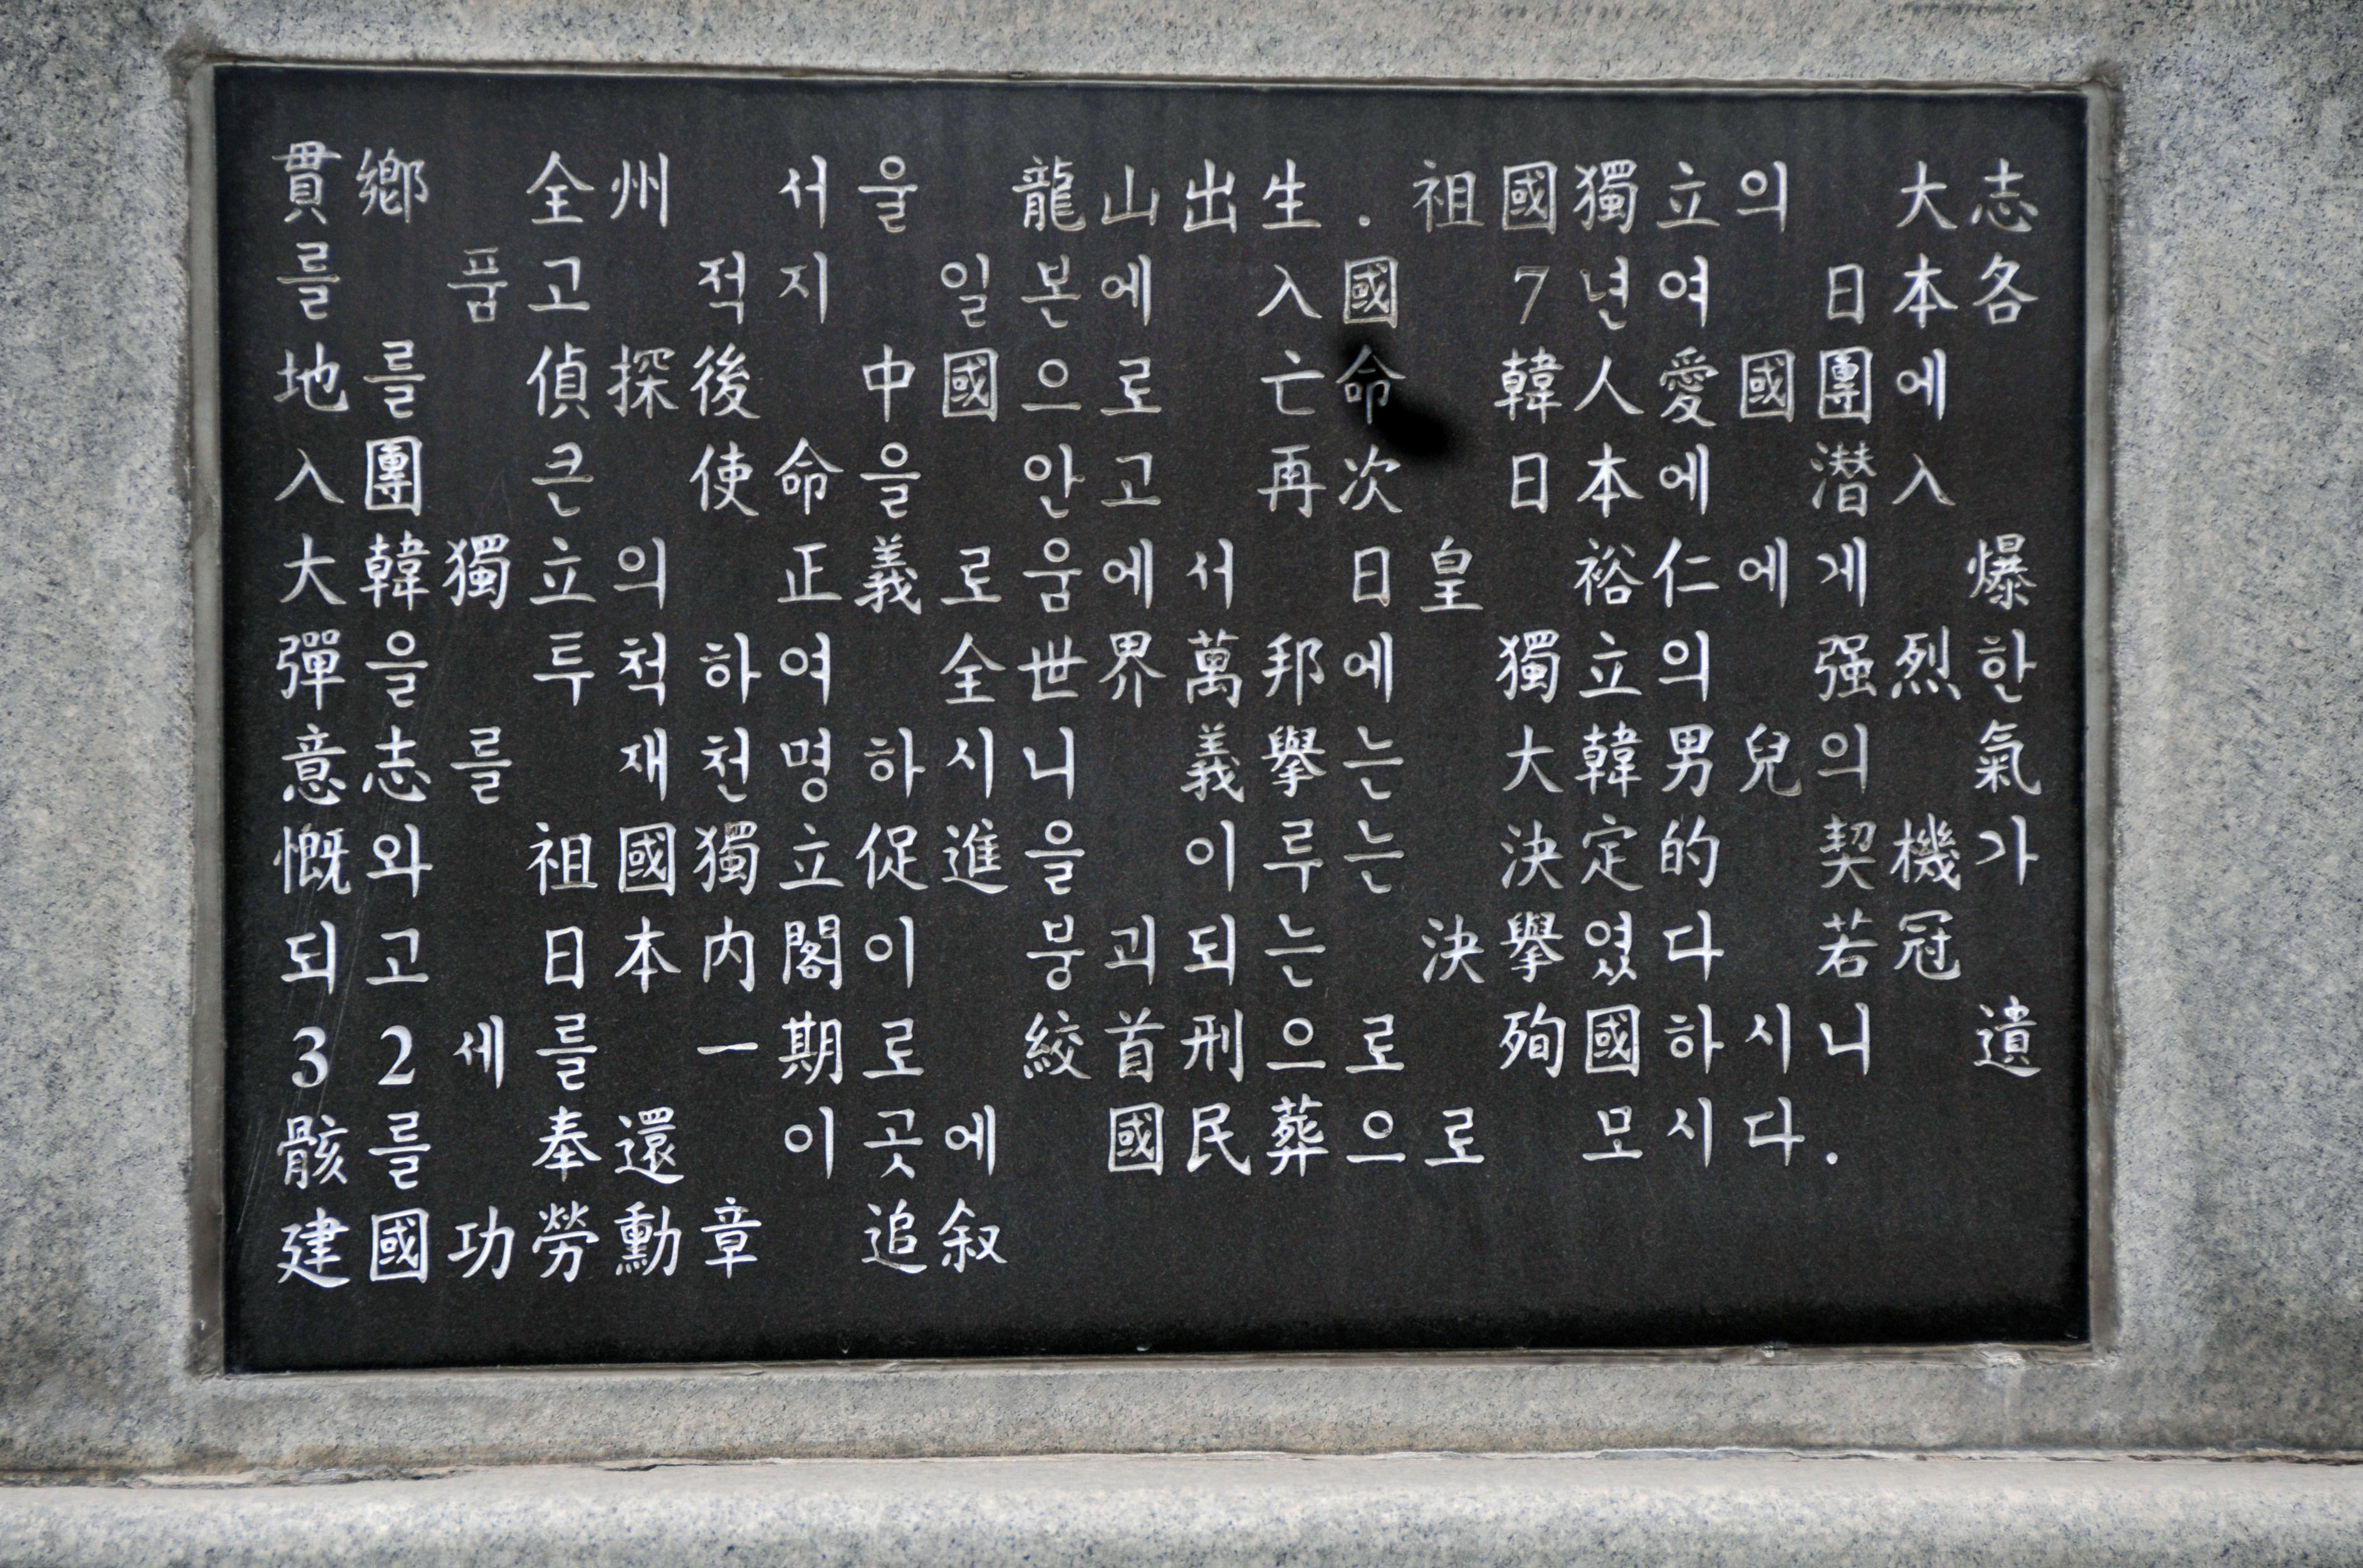 貫鄕 全州 서울 龍山出生. 祖國獨立의 大志
를 품고 적지 일본에 入國 7년여 日本各
地를 偵探後 中國으로 亡命 韓人愛國團에
入團 큰 使命을 안고 再次 日本에 潜入
大韓獨立의 正義로움에서 日皇 裕仁에게 爆
彈을 투척하여 全世界萬邦에 獨立의 强烈한
意志를 재천명하시니 義擧는 大韓男兒의 氣
慨와 祖國獨立促進을 이루는 決定的 契機가
되고 日本内閣이 붕괴되는 決擧였다 若冠
32세를 一期로 絞首刑으로 殉國하시니 遺
骸를 奉還 이곳에 國民葬으로 모시다.
建國功勞勳章 追叙